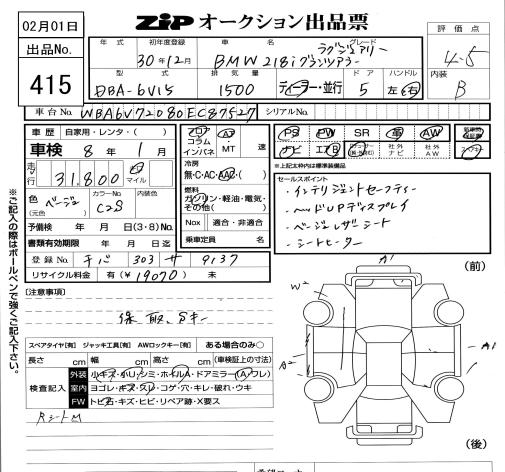 02月01日
ZiP オークション出品票
出品No.
415
年式 初年度登録 車名 グレード
30年12月 BMW218iグランツアラー ラグジュアリー
型式 排気量 ドア ハンドル
DBA-6V15 1500 ディーラー・並行 5 左 右
評価点
4.5
内装
B
車台No. WBA6V72080EC87527 シリアルNo.
車歴 自家用・レンタ・( )
車検 8年 1月
走行 31,800 km マイル
色 ベージュ (元色) カラーNo. C2S 内装色
予備検 年 月 日(3・8)No.
書類有効期限 年 月 日迄
登録No. チバ 303 サ 9137
リサイクル料金 有(¥19070) 未
フロア コラム インパネ AT MT 速
冷房
無・C・AC・AAC・( )
燃料
ガソリン・軽油・電気・その他( )
Nox 適合・非適合
乗車定員 名
PS PW SR 革 AW
ナビ エアB 社外ナビ 社外AW
※上記太枠内は標準装備品
セールスポイント
・インテリジェントセーフティー
・ヘッドUPディスプレイ
・ベージュレザーシート
・シートヒーター
[注意事項]
スペアタイヤ[有] ジャッキ工具[有] AWロックキー[有] ある場合のみ○
長さ cm 幅 cm 高さ cm (車検証上の寸法)
検査記入
外装 小キズ・小凹・シミ・ホイルA・ドアミラー(A・ワレ)
室内 ヨゴレ・キズ・スレ・コゲ・穴・キレ・破れ・ウキ
FW トビ石・キズ・ヒビ・リペア跡・X要ス
RシートM
※ご記入の際はボールペンで強くご記入下さい。
(前)
A1
W2
A2
A1
(後)